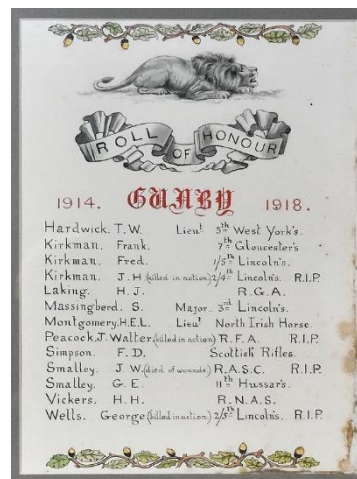 ROLL OF HONOUR
1914. GUNBY 1918.
Hardwick. T.W. Lieut 5th West York's.
Kirkman. Frank. 7th Gloucester's
Kirkman. Fred. 1/5th Lincoln's.
Kirkman. J.H (killed in action) 2/4th Lincoln's. R.I.P.
Laking. H.J. R.G.A.
Massingberd. S. Major. 3rd Lincoln's.
Montgomery. H.E.L. Lieut North Irish Horse.
Peacock, J. Walter (killed in action) R.F.A. R.I.P.
Simpson. F.D. Scottish Rifles.
Smalley. J.W. (died of wounds) R.A.S.C. R.I.P.
Smalley. G.E. 11th Hussar's.
Vickers. H.H. R.N.A.S.
Wells. George (killed in action) 2/5th Lincoln's. R.I.P.